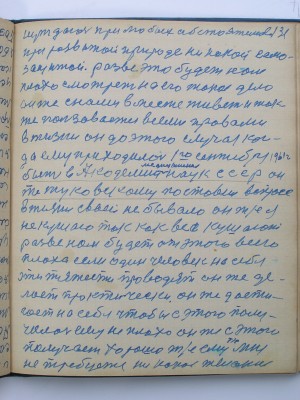 при любых обстоятельст 31
при развитой природе ни какой само-
защитой. разве это будет нам
плохо смотреть на его такое дело
он же с нами вместе живет и так
же пользовается всеми правами
в жизни он до этого случая ког-
да ему приходилось 20 сентября 196
быть в Академии наук СССР он
поставил вопрос
в жизни своей не бывало он же ел
не кушал так как все кушают
разве нам будет от этого всего
плохо если один человек на себе
эти тяжести проводит он же де-
лает практически он же достиг-
ает на себе чтобы с этого полу-
чалось ему не плохо он же с этого
получает хорошо же ему
не требуется ни какой жизни